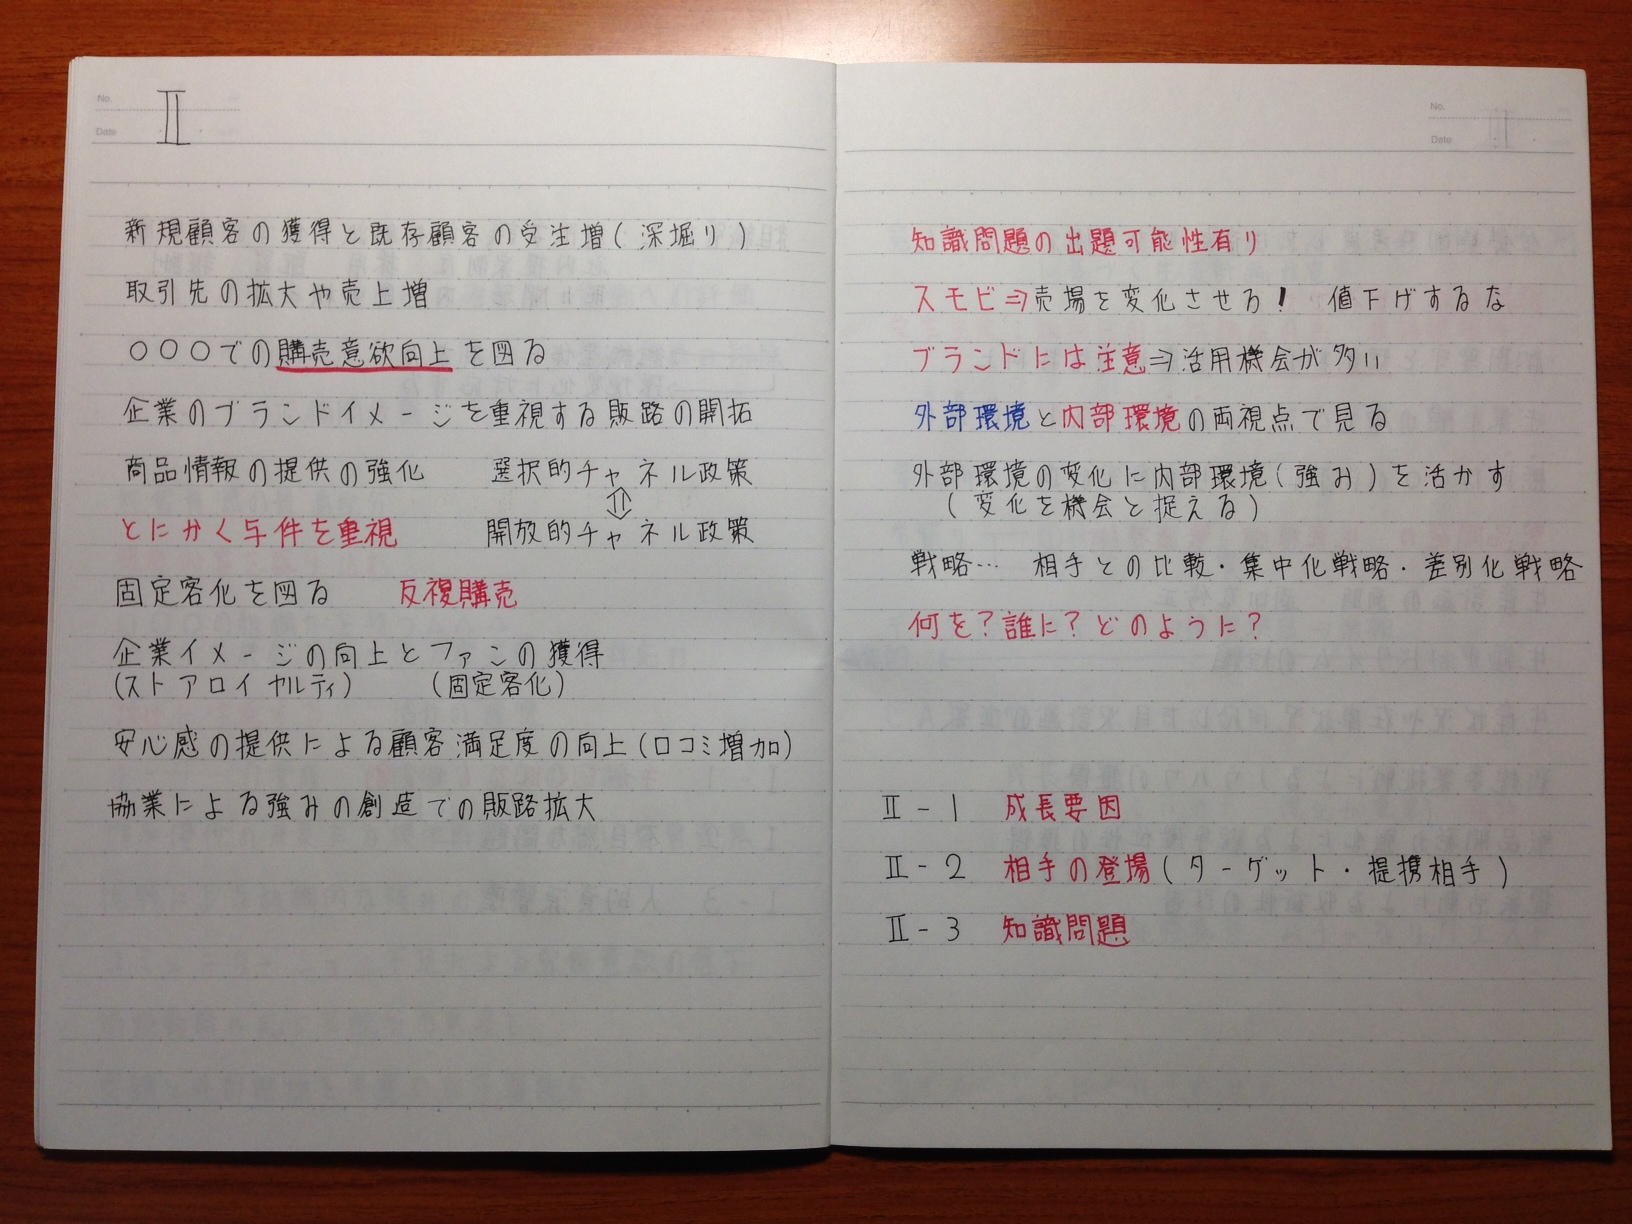 No.
Date
Ⅱ
新規顧客の獲得と既存顧客の受注増(深掘り)
取引先の拡大や売上増
○○○での購売意欲向上を図る
企業のブランドイメージを重視する販路の開拓
商品情報の提供の強化　選択的チャネル政策
⇕
とにかく与件を重視　開放的チャネル政策
固定客化を図る　反復購売
企業イメージの向上とファンの獲得
(ストアロイヤルティ)　(固定客化)
安心感の提供による顧客満足度の向上(口コミ増加)
協業による強みの創造での販路拡大
No.
Date
知識問題の出題可能性有り
スモビ⇒売場を変化させろ!　値下げするな
ブランドには注意⇒活用機会が多い
外部環境と内部環境の両視点で見る
外部環境の変化に内部環境(強み)を活かす
(変化を機会と捉える)
戦略…　相手との比較・集中化戦略・差別化戦略
何を?誰に?どのように?
Ⅱ-1　成長要因
Ⅱ-2　相手の登場(ターゲット・提携相手)
Ⅱ-3　知識問題